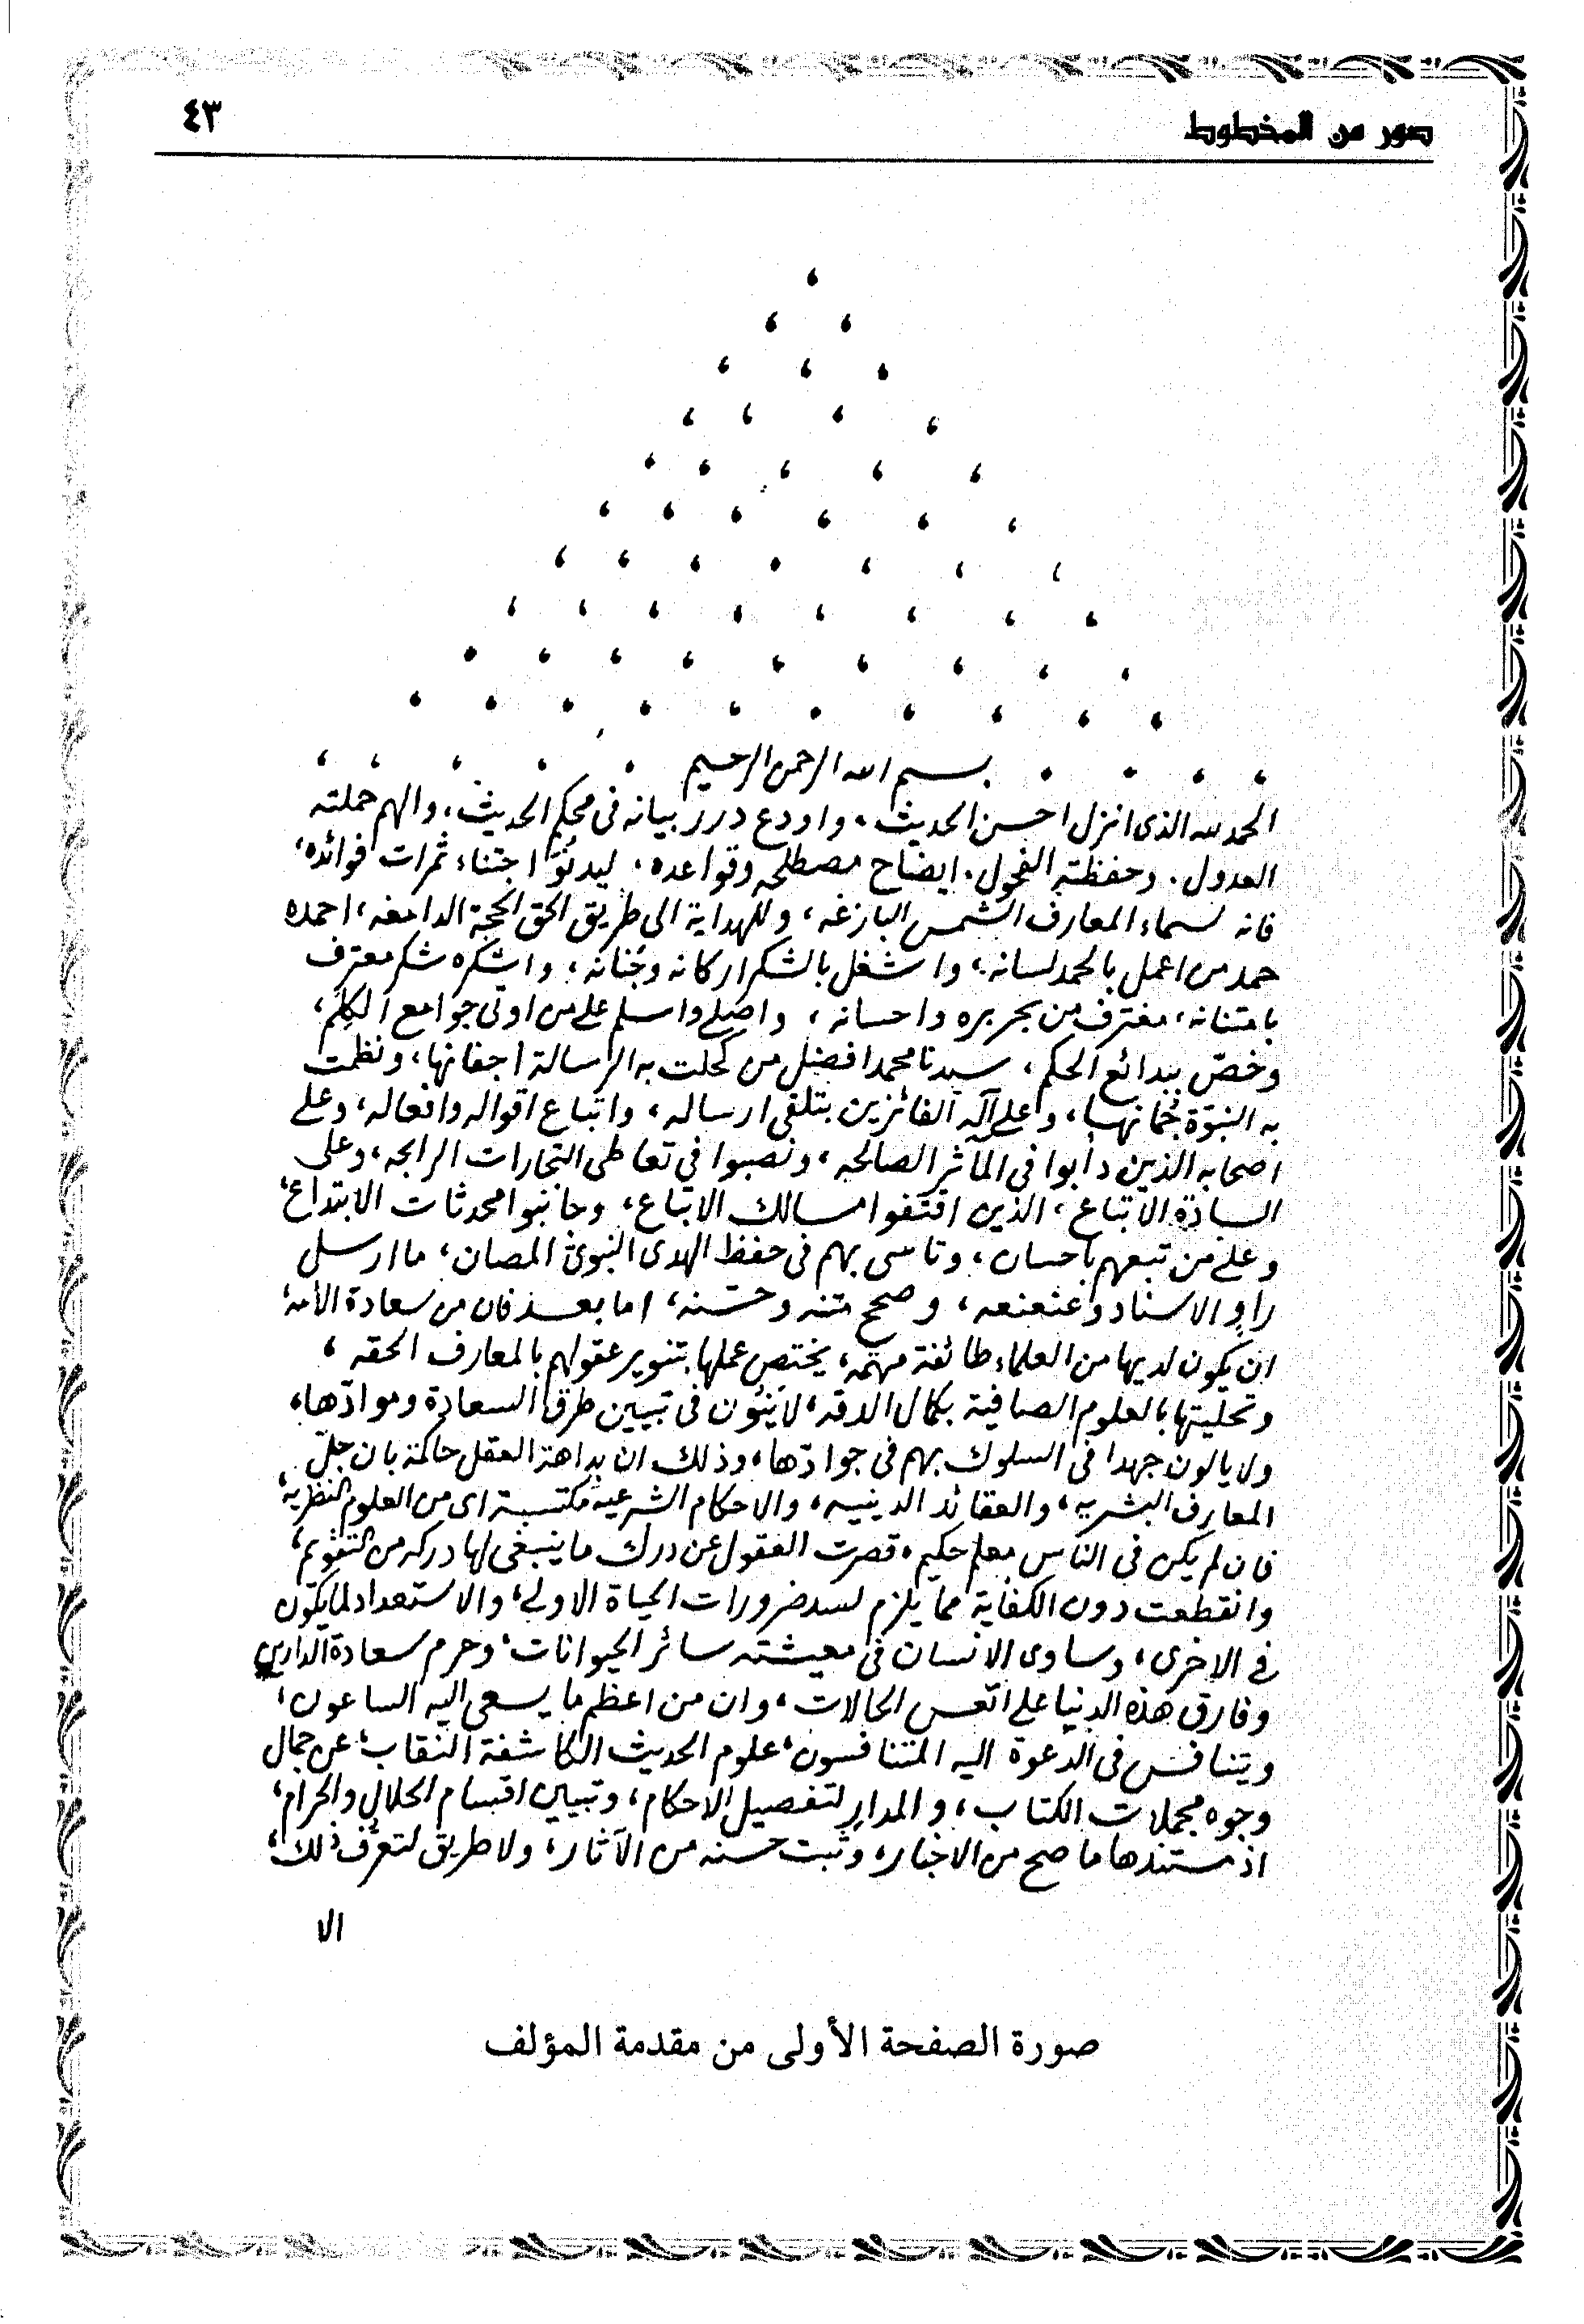 صور من المخطوط
٤٣
بسم الله الرحمن الرحيم
الحمد لله الذى انزل احسن الحديث، واودع درر بيانه فى محكم الحديث، والهم حملته
العدول، وحفظته الفحول، ايضاح مصطلحه وقواعده، ليدنُوَ اجتناء ثمرات فوائده،
فانه لسماء المعارف الشمس البازغه، وللهداية الى طريق الحق الحجة الدامغه، احمده
حمد من اعمل بالحمد لسانه، واشغل بالشكر اركانه وجُنانه، واشكره شكر معترف
بامتنانه، مغترف من بحر بره واحسانه، واصلى واسلم على من اوتى جوامع الكلِم،
وخصّ ببدائع الحكم، سيدنا محمد افضل من كحلت به الرسالة اجفانها، ونظمت
به النبوّة جُمانها، وعلى آله الفائزين بتلقى ارساله، واتباع اقواله وافعاله، وعلى
اصحابه الذين دأبوا فى المآثر الصالحه، ونصبوا فى تعاطى التجارات الرابحه، وعلى
السادة الاتباع، الذين اقتفوا مسالك الاتباع، وجانبوا محدثات الابتداع،
وعلى من تبعهم باحسان، وتاسى بهم فى حفظ الهدى النبوىّ المصان، ما ارسل
راوٍ الاسناد وعنعنعه، وصحح متنه وحسّنه، اما بعد فان من سعادة الأمه،
ان يكون لديها من العلماء طائفة مهمّه، يختص عملها بتنوير عقولهم بالمعارف الحقه،
وتحليتها بالعلوم الصافية بكمال الدقه، لا يَنُون فى تبيين طرق السعادة وموادّها،
ولا يالون جهدا فى السلوك بهم فى جوادّها، وذلك ان بداهة العقل حاكمة بان جلّ
المعارف البشريه، والعقائد الدينيه، والاحكام الشرعيه مكتسبة اى من العلوم النظريه،
فان لم يكن فى الناس معلم حكيم، قصرت العقول عن درك ما ينبغى لها دركه من التقويم،
وانقطعت دون الكفاية مما يلزم لسد ضرورات الحياة الاولى، والاستعداد لما يكون
فى الاخرى، وساوى الانسان فى معيشته سائر الحيوانات، وحرم سعادة الدارين
وفارق هذه الدنيا على اتعس الحالات، وان من اعظم ما يسعى اليه الساعون،
ويتنافس فى الدعوة اليه المتنافسون، علوم الحديث الكاشفة النقاب، عن جمال
وجوه مجملات الكتاب، والمدار لتفصيل الاحكام، وتبيين اقسام الحلال والحرام،
اذ مستندها ما صح من الاخبار، وثبت حسنه من الآثار، ولا طريق لتعرّف ذلك،
الا
صورة الصفحة الأولى من مقدمة المؤلف